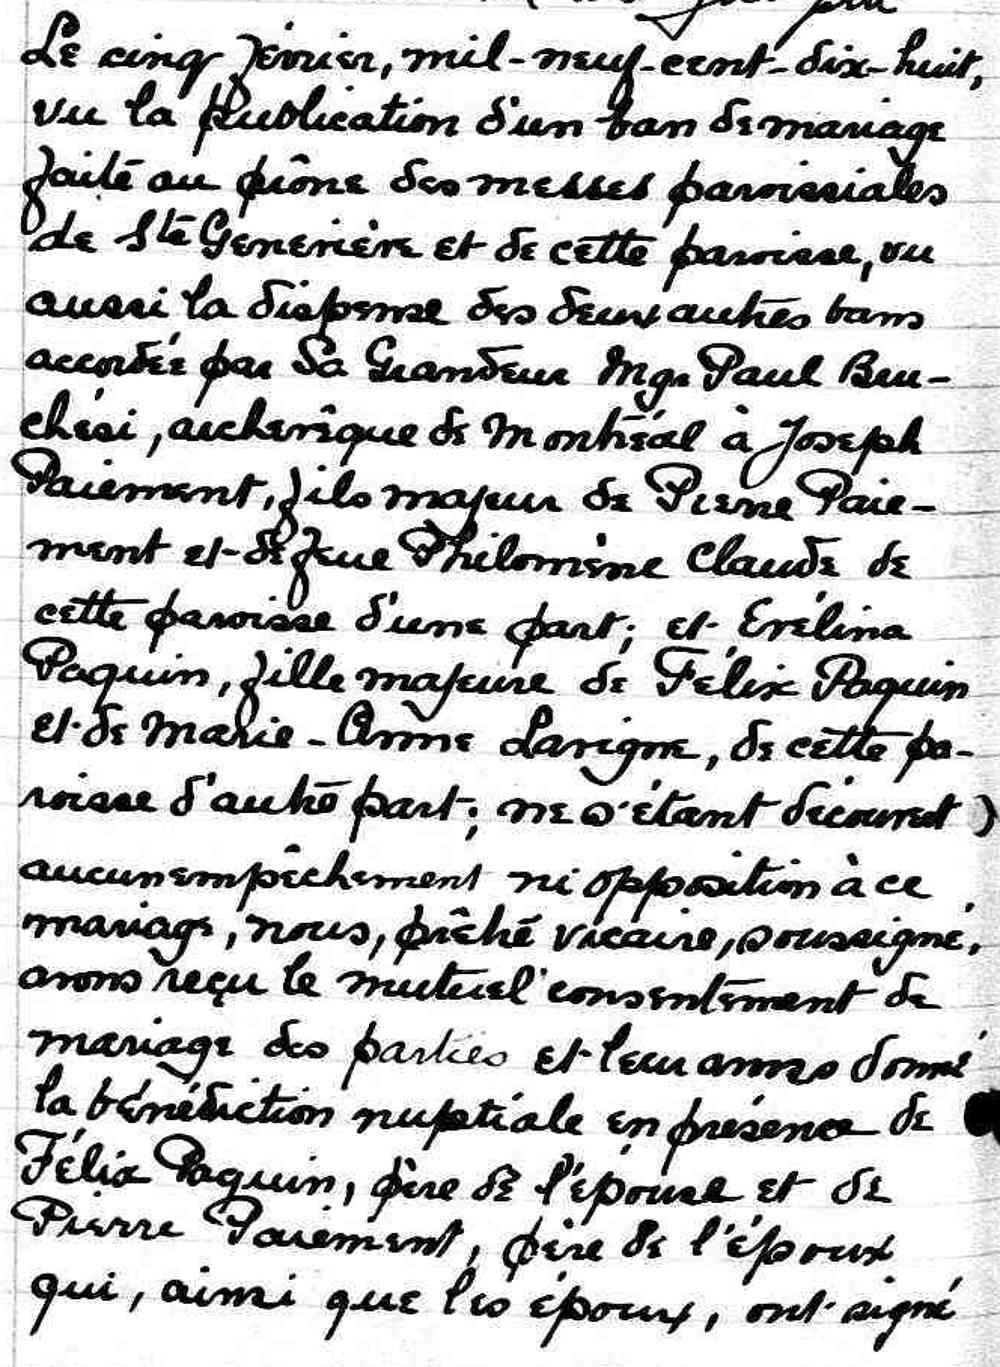 Le cinq février, mil-neuf-cent-dix-huit,
vu la publication d'un ban de mariage
faite au prône des messes paroissiales
de Ste Geneviève et de cette paroisse, vu
aussi la dispense des deux autres bans
accordée par Sa Grandeur Mgr Paul Bru-
chési, archevêque de Montréal à Joseph
Paiement, fils majeur de Pierre Paie-
ment et de feue Philomène Claude de
cette paroisse d'une part; et Evélina
Paquin, fille majeure de Félix Paquin
et de Marie-Anne Lavigne, de cette pa-
roisse d'autre part; ne s'étant découvert
aucun empêchement ni opposition à ce
mariage, nous, prêtre vicaire, soussigné,
avons reçu le mutuel consentement de
mariage des parties et leur avons donné
la bénédiction nuptiale en présence de
Félix Paquin, père de l'épouse et de
Pierre Paiement, père de l'époux
qui, ainsi que les époux, ont signé